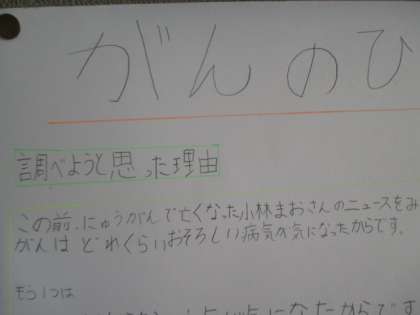 がんのひ
調べようと思った理由
この前、にゅうがんで亡くなった小林まおさんのニュースをみ
がんは どれくらいおそろしい病気か気になったからです。
もう1つは
になったからです